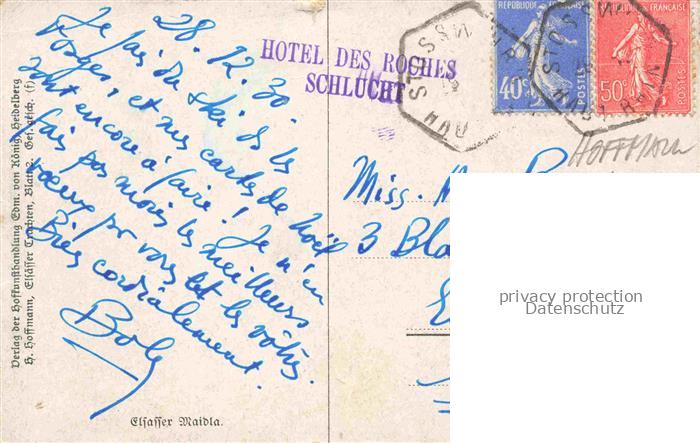 28.12.30.
Je fais du ski ds les
Vosges, et mes cartes de Noël
sont encore à faire ! Je n'en
fais pas moins les meilleurs
voeux pr vous et les vôtres.
Bien cordialement.
HOTEL DES ROCHES
SCHLUCHT
RÉPUBLIQUE FRANÇAISE
40c POSTES
FRANÇAISE
50c POSTES
HOFFMANN
Miss. M
3 Bla
privacy protection
Datenschutz
Verlag der Hofkunsthandlung Edm. von König, Heidelberg
H. Hoffmann, Elsässer Trachten, Blatt 2. Ges. gesch. (f)
Elsasser Maidla.